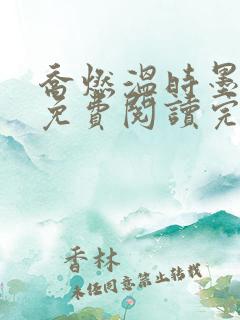 喬燃溫時墨
免費閱讀完
香林
未经同意禁止转载